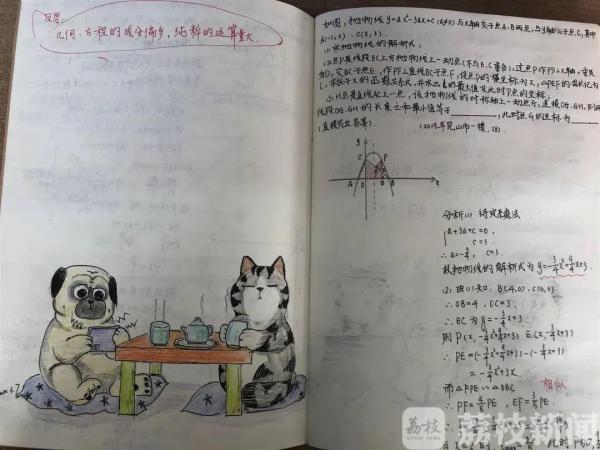 反思:
几何、方程的成分偏多,纯粹的运算量大.
如图,抛物线 y=ax²-3ax+c (a≠0) 与x轴交于点A、B两点,与y轴交于点C,其中
A(-1,0), C(0,3).
(1) 求抛物线的解析式;
(2)点P是线段BC上方抛物线上一动点(不与B、C重合),过点P作PD⊥x轴,垂足
为D,交BC于点E,作PF⊥直线BC于点F,设点P的横坐标为x,△PEF的周长记为
L,求L关于x的函数关系式,并求出L的最大值及此时P点的坐标;
(3) H点是直线AC上一点,该抛物线的对称轴上一动点G,连接OG、GH,则两
线段OG、GH的长度之和最小值等于 ,此时点G的坐标为
(直接写出答案)
y
C
P
A
O
D
B
x
分析:(1) 待定系数法
a+3a+c=0,
c=3.
∴ a=-3/4, c=3.
故抛物线的解析式为 y=-3/4x²+9/4x+3.
(2) 由(1)知, B(4,0), C(0,3).
∴ OB=4, OC=3.
∴ BC为 y=-3/4x+3.
则 P(x, -3/4x²+9/4x+3) E(x,-3/4x+3)
∴ PE=(-3/4x²+9/4x+3)-(-3/4x+3)
=-3/4x²+3x
而△FPE∽△OBC 相似
∴ PF=4/5PE, EF=3/5PE.
荔枝
荔枝新闻